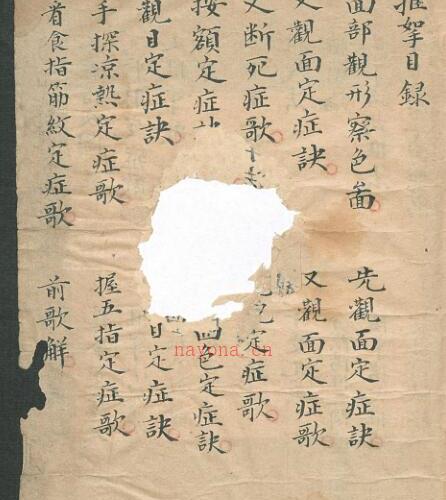 推拏目録
面部觀形察色 先觀面定症訣
又觀面定症訣 又觀面定症歌
又断死症歌 定症歌
按額定症 色定症訣
觀目定症訣 目定症訣
手探凉熱定症歌 握五指定症歌
看食指筋紋定症歌 前歌解
nayona.cn